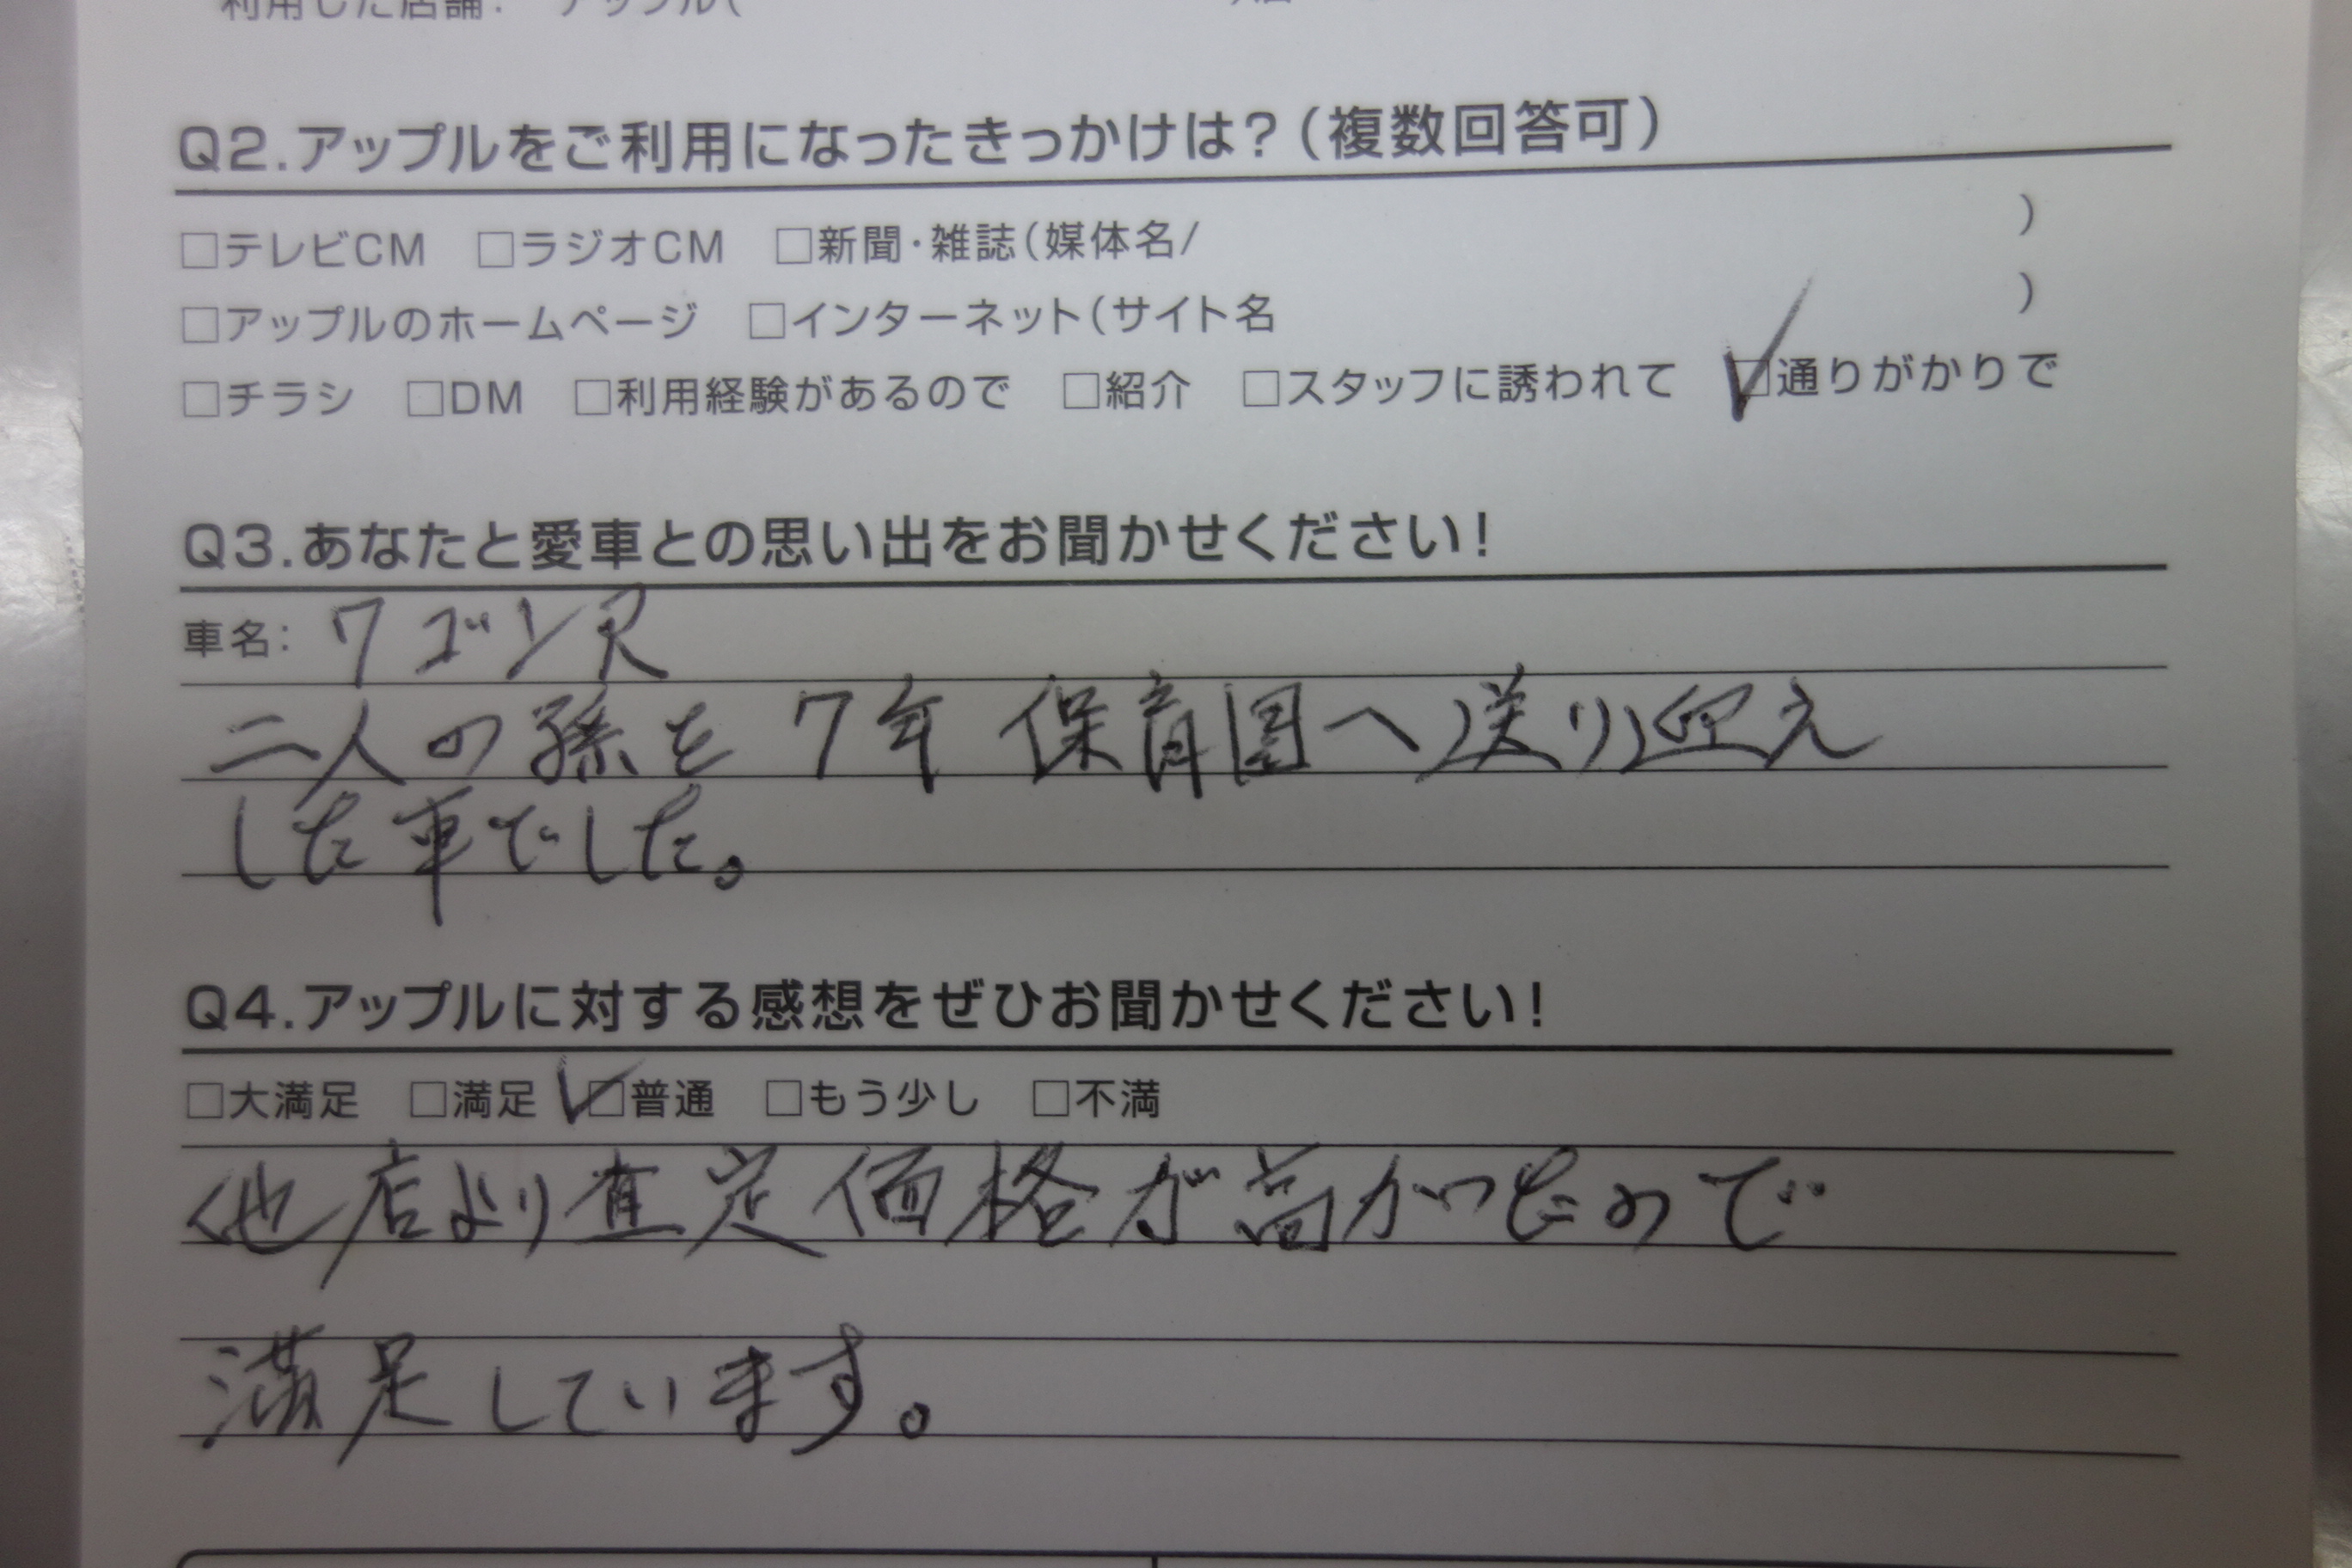 利用した店舗: アップル(
Q2.アップルをご利用になったきっかけは?(複数回答可)
□テレビCM □ラジオCM □新聞・雑誌(媒体名/ )
□アップルのホームページ □インターネット(サイト名 )
□チラシ □DM □利用経験があるので □紹介 □スタッフに誘われて ☑通りがかりで
Q3.あなたと愛車との思い出をお聞かせください!
車名: ワゴンR
二人の孫を7年保育園へ送り迎え
した車でした。
Q4.アップルに対する感想をぜひお聞かせください!
□大満足 □満足 ☑普通 □もう少し □不満
他店より査定価格が高かったので
満足しています。